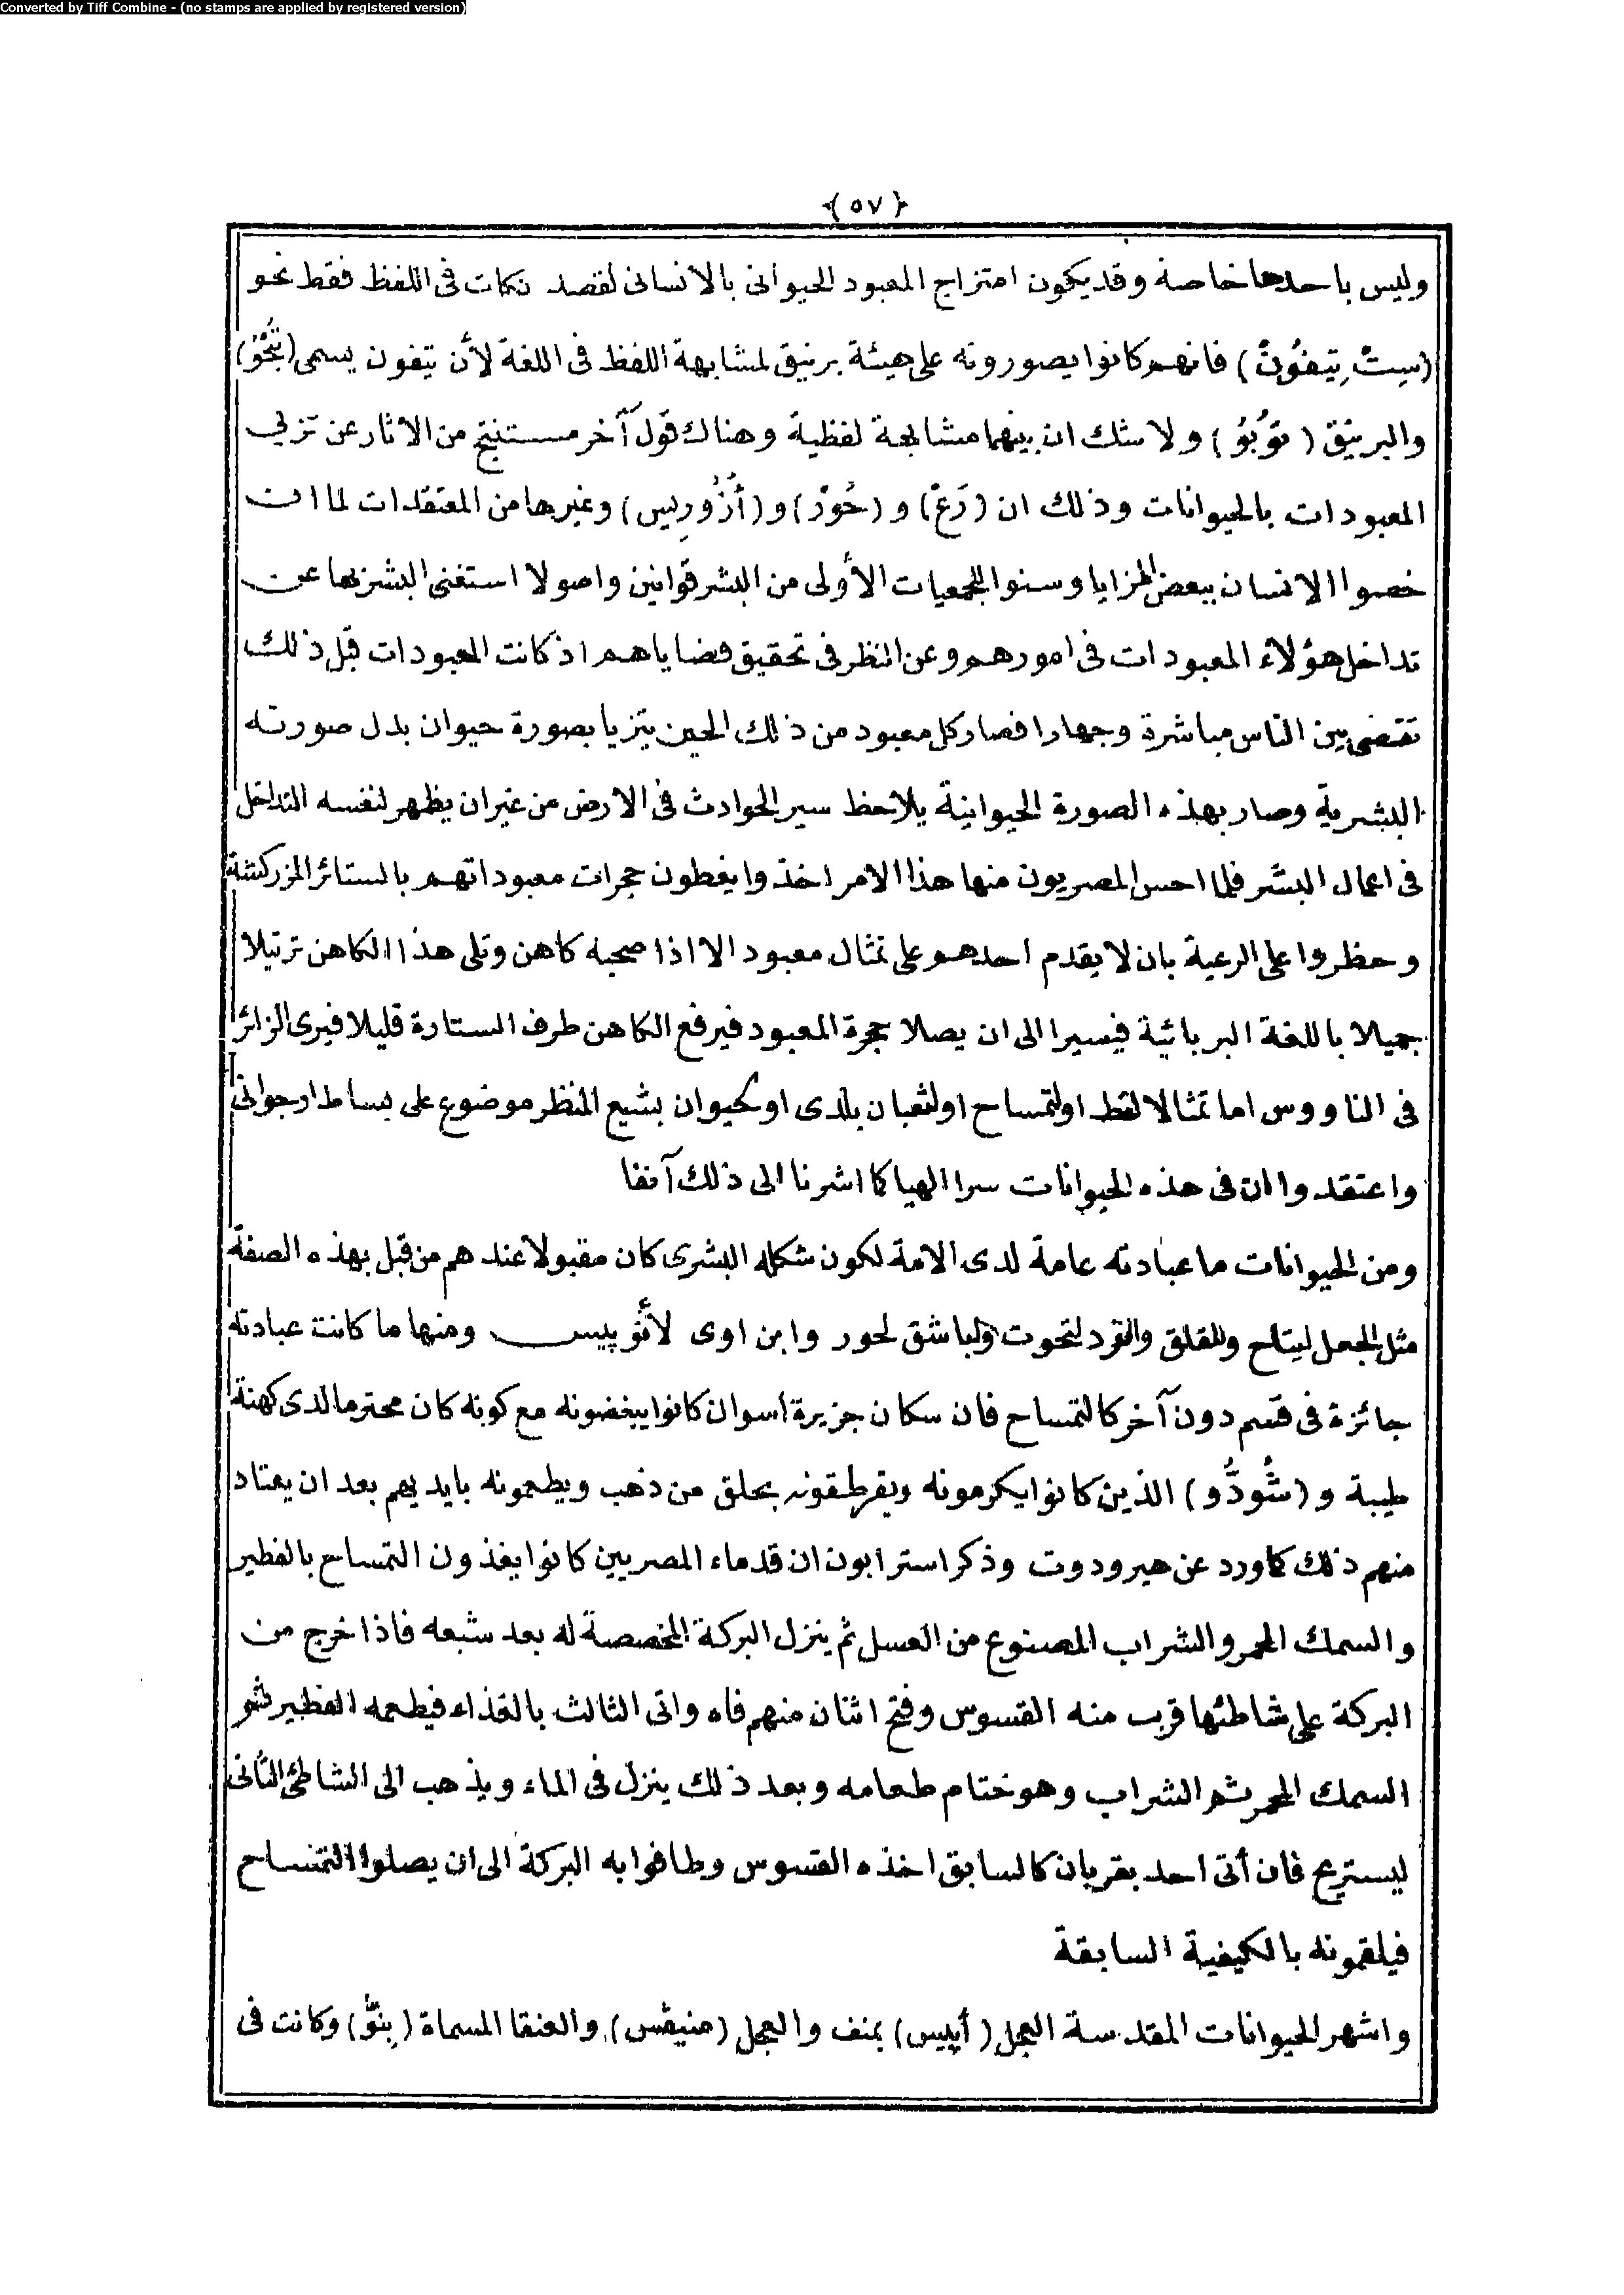 Converted by Tiff Combine - (no stamps are applied by registered version)
﴿٥٧﴾
وليس باحدها خاصة وقد يكون امتزاج المعبود الحيوانى بالانسانى لقصد نكات فى اللفظ فقط نحو
(سِتْ تِيفُونْ) فانهم كانوا يصورونه على هيئة برنيق لمشابهة اللفظ فى اللغة لأن تيفون يسمى (تِبْحُوُ)
والبرنيق (تُوبُوُ) ولا شك ان بينهما مشابهة لفظية وهناك قول آخر مستنتج من الاثار عن تزيى
المعبودات بالحيوانات وذلك ان (رَعْ) و (حُورْ) و (أُزُورِيس) وغيرها من المعتقدات لما ان
خصوا الانسان ببعض المزايا وسنوا للجمعيات الأولى من البشر قوانين واصولا استغنى البشر بها عن
تداخل هؤلاء المعبودات فى امورهم وعن النظر فى تحقيق قضاياهم اذ كانت المعبودات قبل ذلك
تقتضى بين الناس مباشرة وجهارا فصار كل معبود من ذلك الحين يتزيا بصورة حيوان بدل صورته
البشرية وصار بهذه الصورة الحيوانية يلاحظ سير الحوادث فى الارض من غير ان يظهر لنفسه التداخل
فى اعمال البشر فلما احس المصريون منها هذا الامر اخذوا يغطون حجرات معبوداتهم بالستائر المزركشة
وحظروا على الرعية بان لا يقدم احدهم على تمثال معبود الا اذا صحبه كاهن وتلى هذا الكاهن ترتيلا
جميلا باللغة البربائية فيسيرا الى ان يصلا حجرة المعبود فيرفع الكاهن طرف الستارة قليلا فيرى الزائر
فى الناووس اما تمثالا لقط اولتمساح اولثعبان بلدى او لحيوان بشيع المنظر موضوع على بساط ارجوانى
واعتقدوا ان فى هذه الحيوانات سرا الهيا كما اشرنا الى ذلك آنفا
ومن الحيوانات ما عبادته عامة لدى الامة لكون شكله البشرى كان مقبولا عندهم من قبل بهذه الصفة
مثل الجعل لپتاح واللقلق والقرد لتحوت والباشق لحور وابن اوى لأنُوپيس ومنها ما كانت عبادته
جائزة فى قسم دون آخر كالتمساح فان سكان جزيرة اسوان كانوا يبغضونه مع كونه كان محترما لدى كهنة
طيبة و (شُودُّو) الذين كانوا يكرمونه ويقرطقونه بحلق من ذهب ويطعمونه بايديهم بعد ان يعتاد
منهم ذلك كما ورد عن هيرودوت وذكر استرابون ان قدماء المصريين كانوا يغذون التمساح بالفطير
والسمك المحمر والشراب المصنوع من العسل ثم ينزل البركة المخصصة له بعد شبعه فاذا خرج من
البركة على شاطئها قرب منه القسوس وفتح اثنان منهم فاه واتى الثالث بالغذاء فيطعمه الفطير ثم
السمك المحمر ثم الشراب وهو ختام طعامه وبعد ذلك ينزل فى الماء ويذهب الى الشاطئ الثانى
ليستريح فان أتى احد بقربان كالسابق اخذه القسوس وطافوا به البركة الى ان يصلوا التمساح
فيلقمونه بالكيفية السابقة
واشهر الحيوانات المقدسة العجل (أپيس) بمنف والعجل (منيڤس) والعنقا المسماة (بِنُّو) وكانت فى